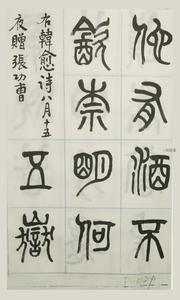 他有酒不
飲柰明何
五嶽
右韓愈詩八月十五
夜贈張功曹